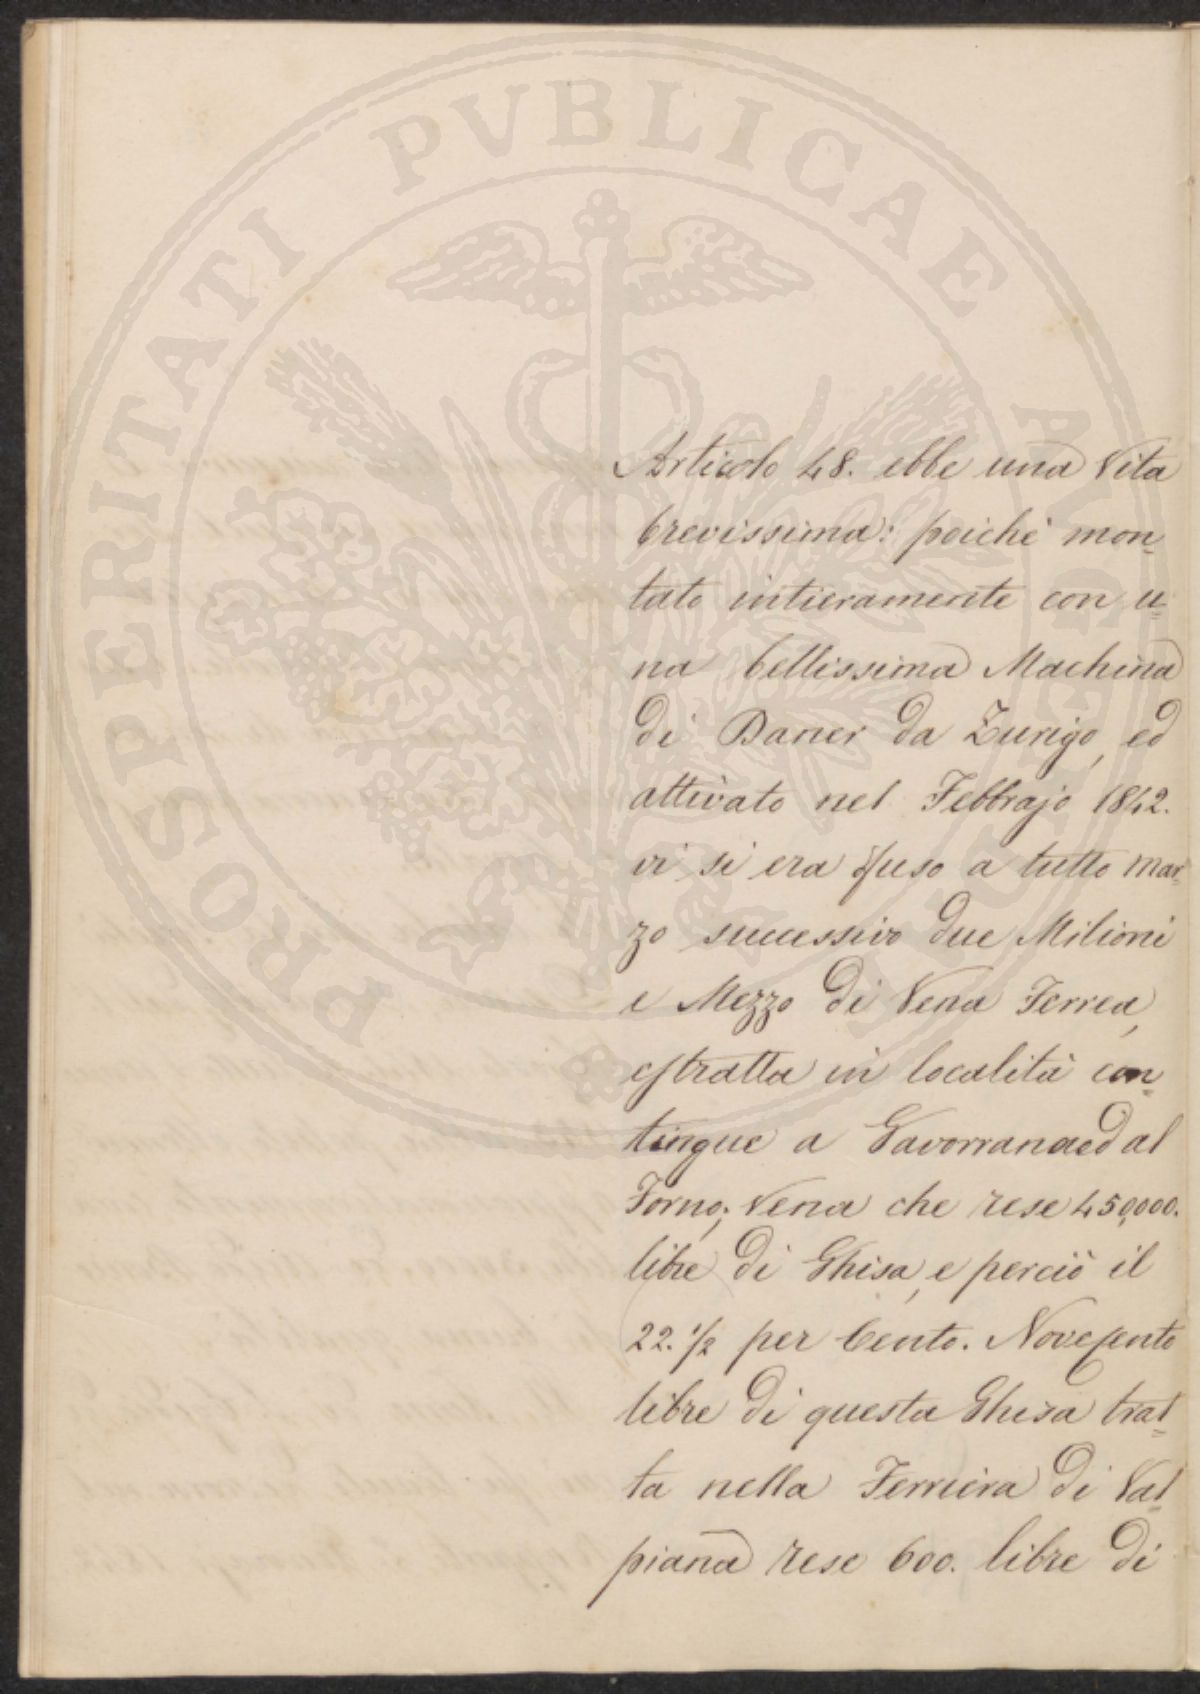 PROSPERITATI PVBLICAE AVGENDAE
Articolo 48. ebbe una Vita
brevissima: poichè mon
tato intieramente con u
na bellissima Machina
di Baner da Zurigo, ed
attivato nel Febbrajo 1842.
vi si era fuso a tutto mar
zo successivo due Milioni
e Mezzo di Vena Ferrea,
estratta in località con
tingue a Gavorrana ed al
Forno; Vena che rese 450,000.
libre di Ghisa, e perciò il
22. 1/2 per Cento. Novecento
libre di questa Ghisa trat
ta nella Ferriera di Val
piana rese 600. libre di